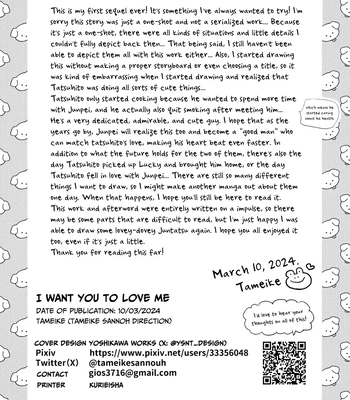 This is my first sequel ever! It's something I've always wanted to try! I'm
sorry this story was just a one-shot and not a serialized work... Because
it's just a one-shot, there were all kinds of situations and little details I
couldn't fully depict back then... That being said, I still haven't been
able to depict them all with this work either.. Also, I started drawing
this without making a proper storyboard or even choosing a title, so it
was kind of embarrassing when I started drawing and realized that
Tatsuhito was doing all sorts of cute things...
Tatsuhito only started cooking because he wanted to spend more time
with Junpei, and he actually quit smoking after meeting him...
which means he
started caring
about his health
He's a very dedicated, admirable, and cute guy. I hope that as the
years go by, Junpei will realize this too and become a "good man" who
can match tatsuhito's love, making his heart beat even faster. In
addition to what the future holds for the two of them, there's also the
day Tatsuhito picked up Lucky and brought him home, or the day
Tatsuhito fell in love with Junpei... There are still so many different
things I want to draw, so I might make another manga out about them
one day. When that happens, I hope you'll still be here to read it.
This work and afterword were entirely written on a impulse, so there
may be some parts that are difficult to read, but I'm just happy I was
able to draw some lovey-dovey Juntatsu again. I hope you all enjoyed it
too, even if it's just a little.
Thank you for reading this far!
March 10, 2024.
Tameike
I'd love to hear your
thoughts on all of this!
I WANT YOU TO LOVE ME
DATE OF PUBLICATION: 10/03/2024
TAMEIKE (TAMEIKE SANNOH DIRECTION)
COVER DESIGN YOSHIKAWA WORKS (X: @YSNT_DESIGN)
Pixiv https://www.pixiv.net/users/33356048
Twitter(X) @tameikesannouh
CONTACT gios3716@gmail.com
PRINTER KURIEISHA